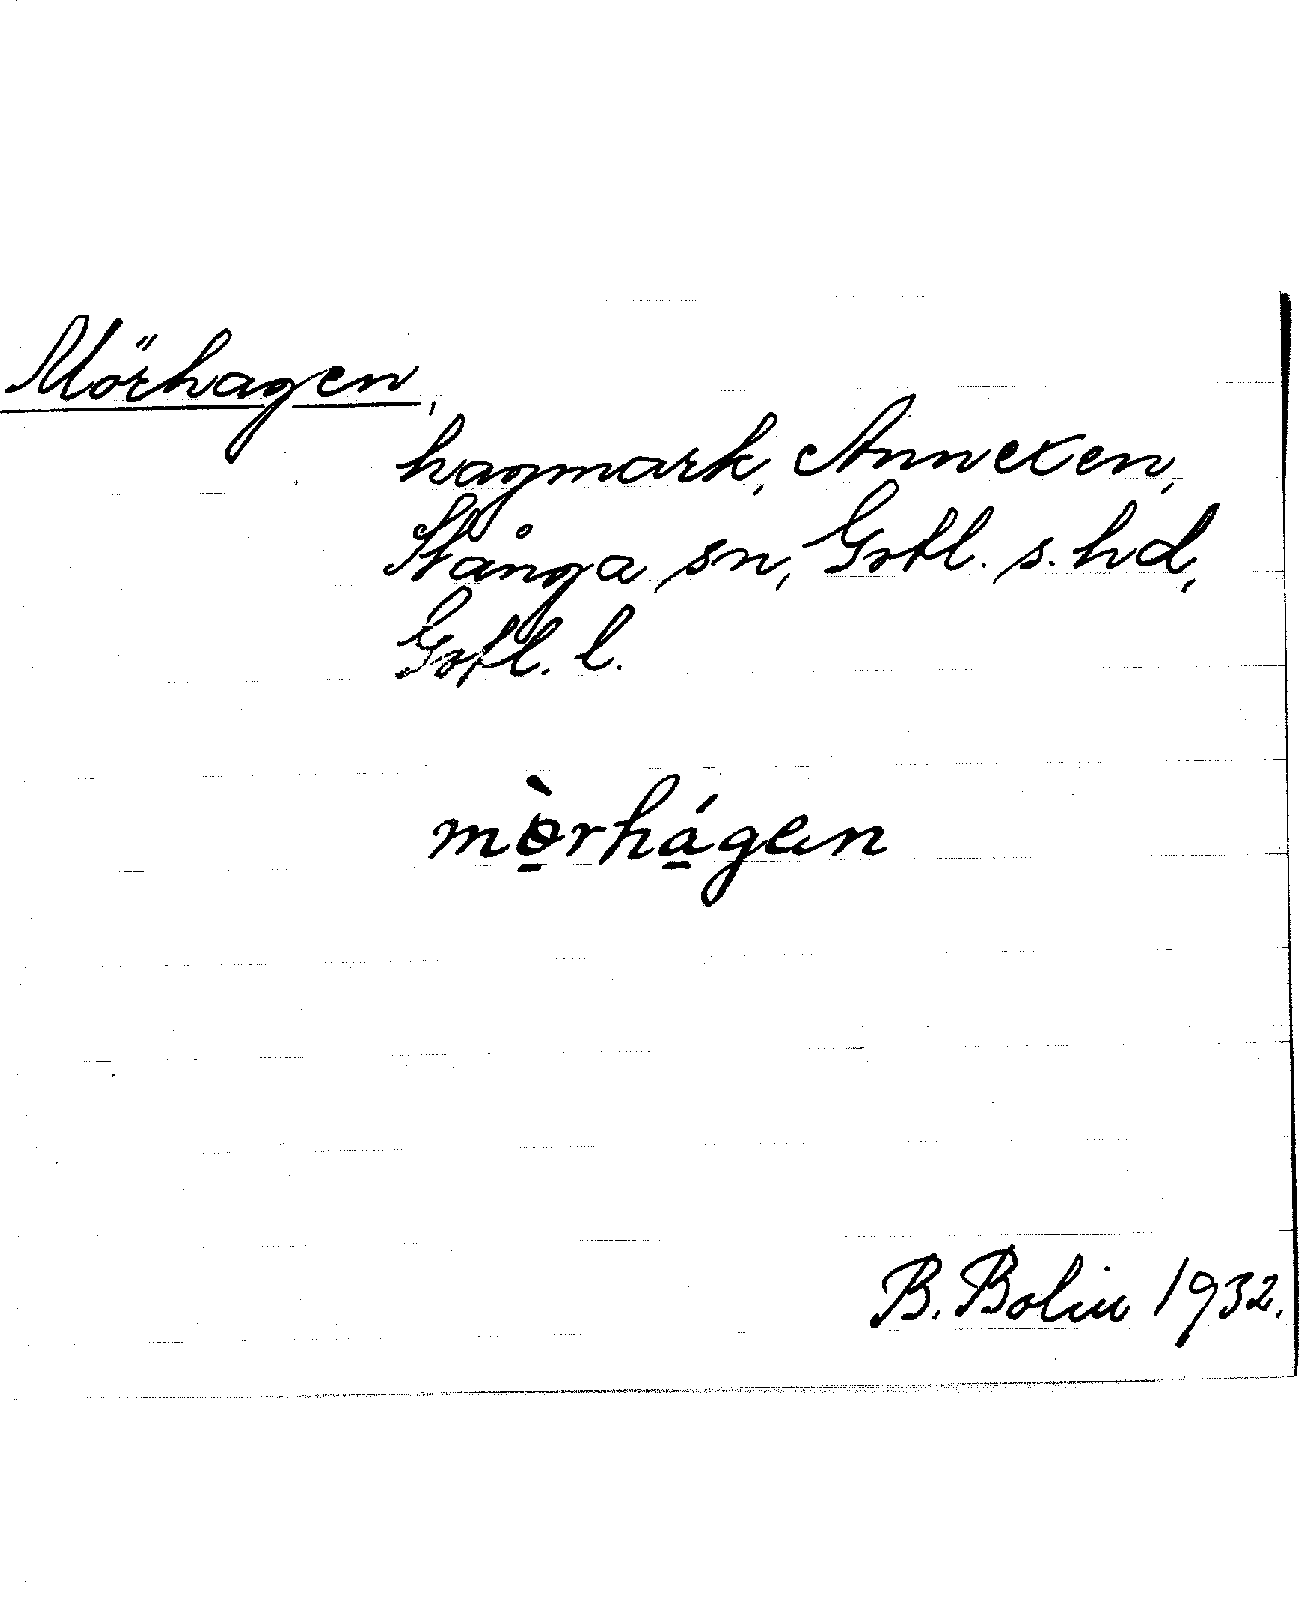 Mörhagen,
hagmark, Annexen,
Stånga sn, Gotl. s. hd,
Gotl. l.
mὸ̱rhá̱gen
B. Bolin 1932.